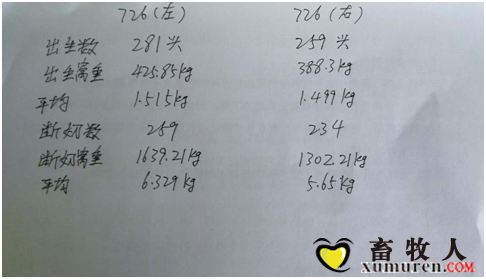 726(左) 726(右)
出生数 281头 259头
出生窝重 425.85kg 388.3kg
平均 1.515kg 1.499kg
断奶数 259 234
断奶窝重 1639.21kg 1302.21kg
平均 6.329kg 5.65kg
畜牧人
xumuren.COM